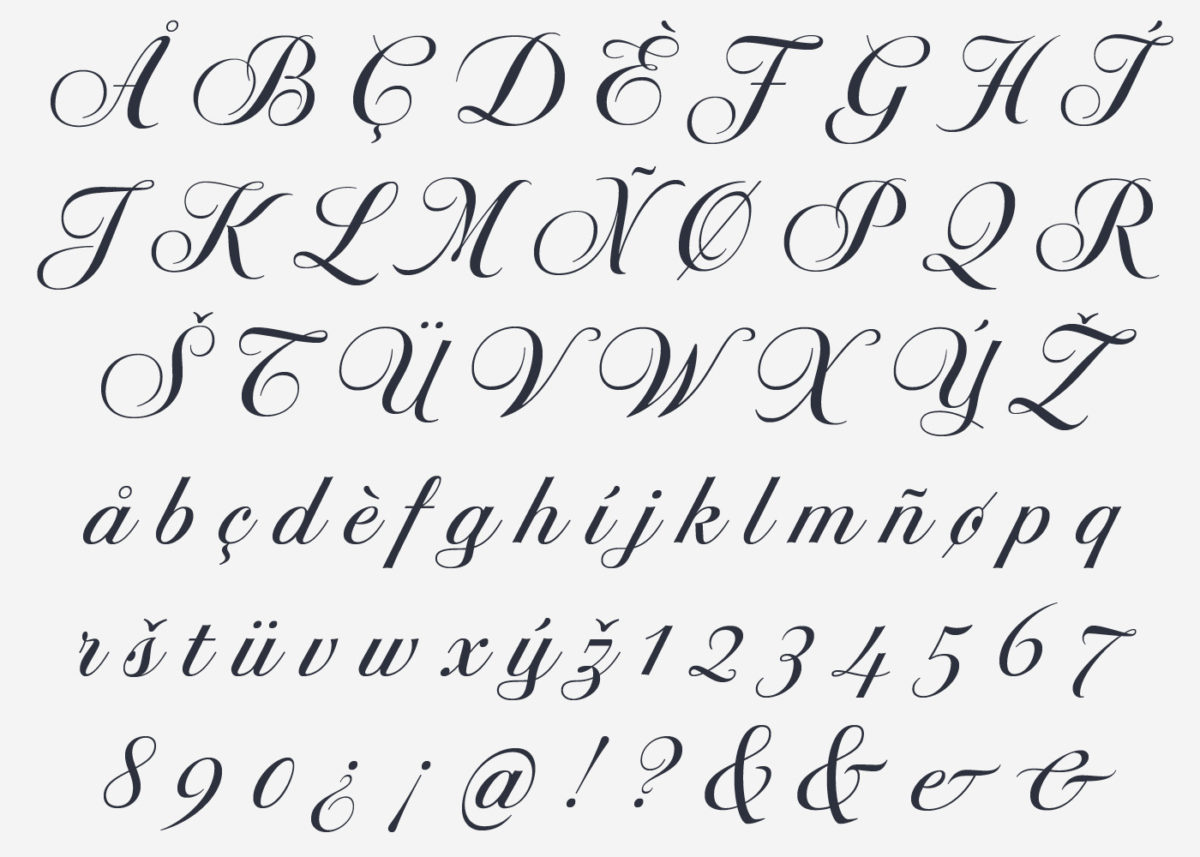 Å B Ç D È F G H Í
J K L M Ñ Ø P Q R
Š T Ü V W X Ý Ž
å b ç d è f g h í j k l m ñ ø p q
r š t ü v w x ý ž 1 2 3 4 5 6 7
8 9 0 ¿ ¡ @ ! ? & & & &